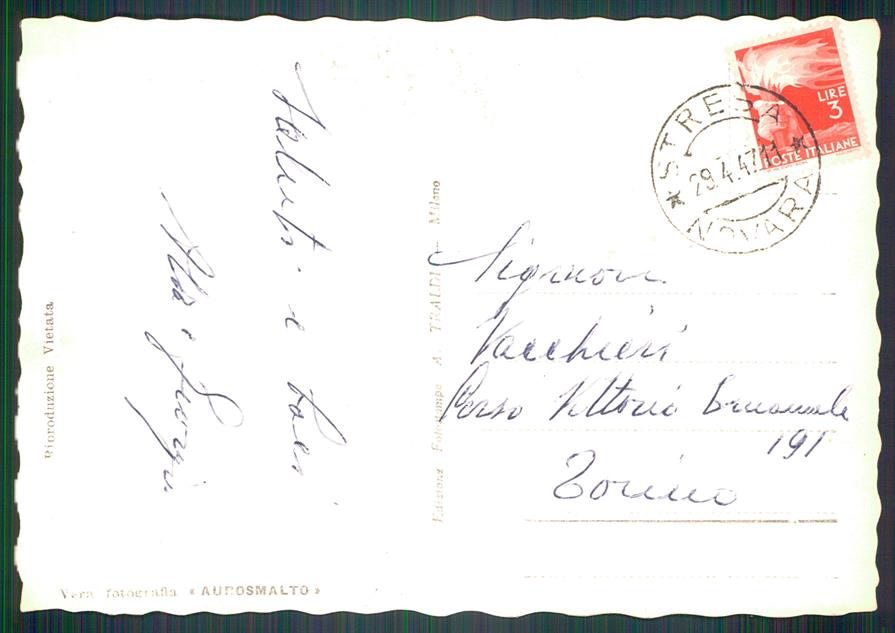 Saluti e baci
Alda e Giorgio
Riproduzione Vietata
Vera fotografia « AUROSMALTO »
Edizione Fototampo A. TRALDI - Milano
LIRE
3
POSTE ITALIANE
STRESA
29.4.47.11
NOVARA
Signori
Vacchieri
Corso Vittorio Emanuele
191
Torino